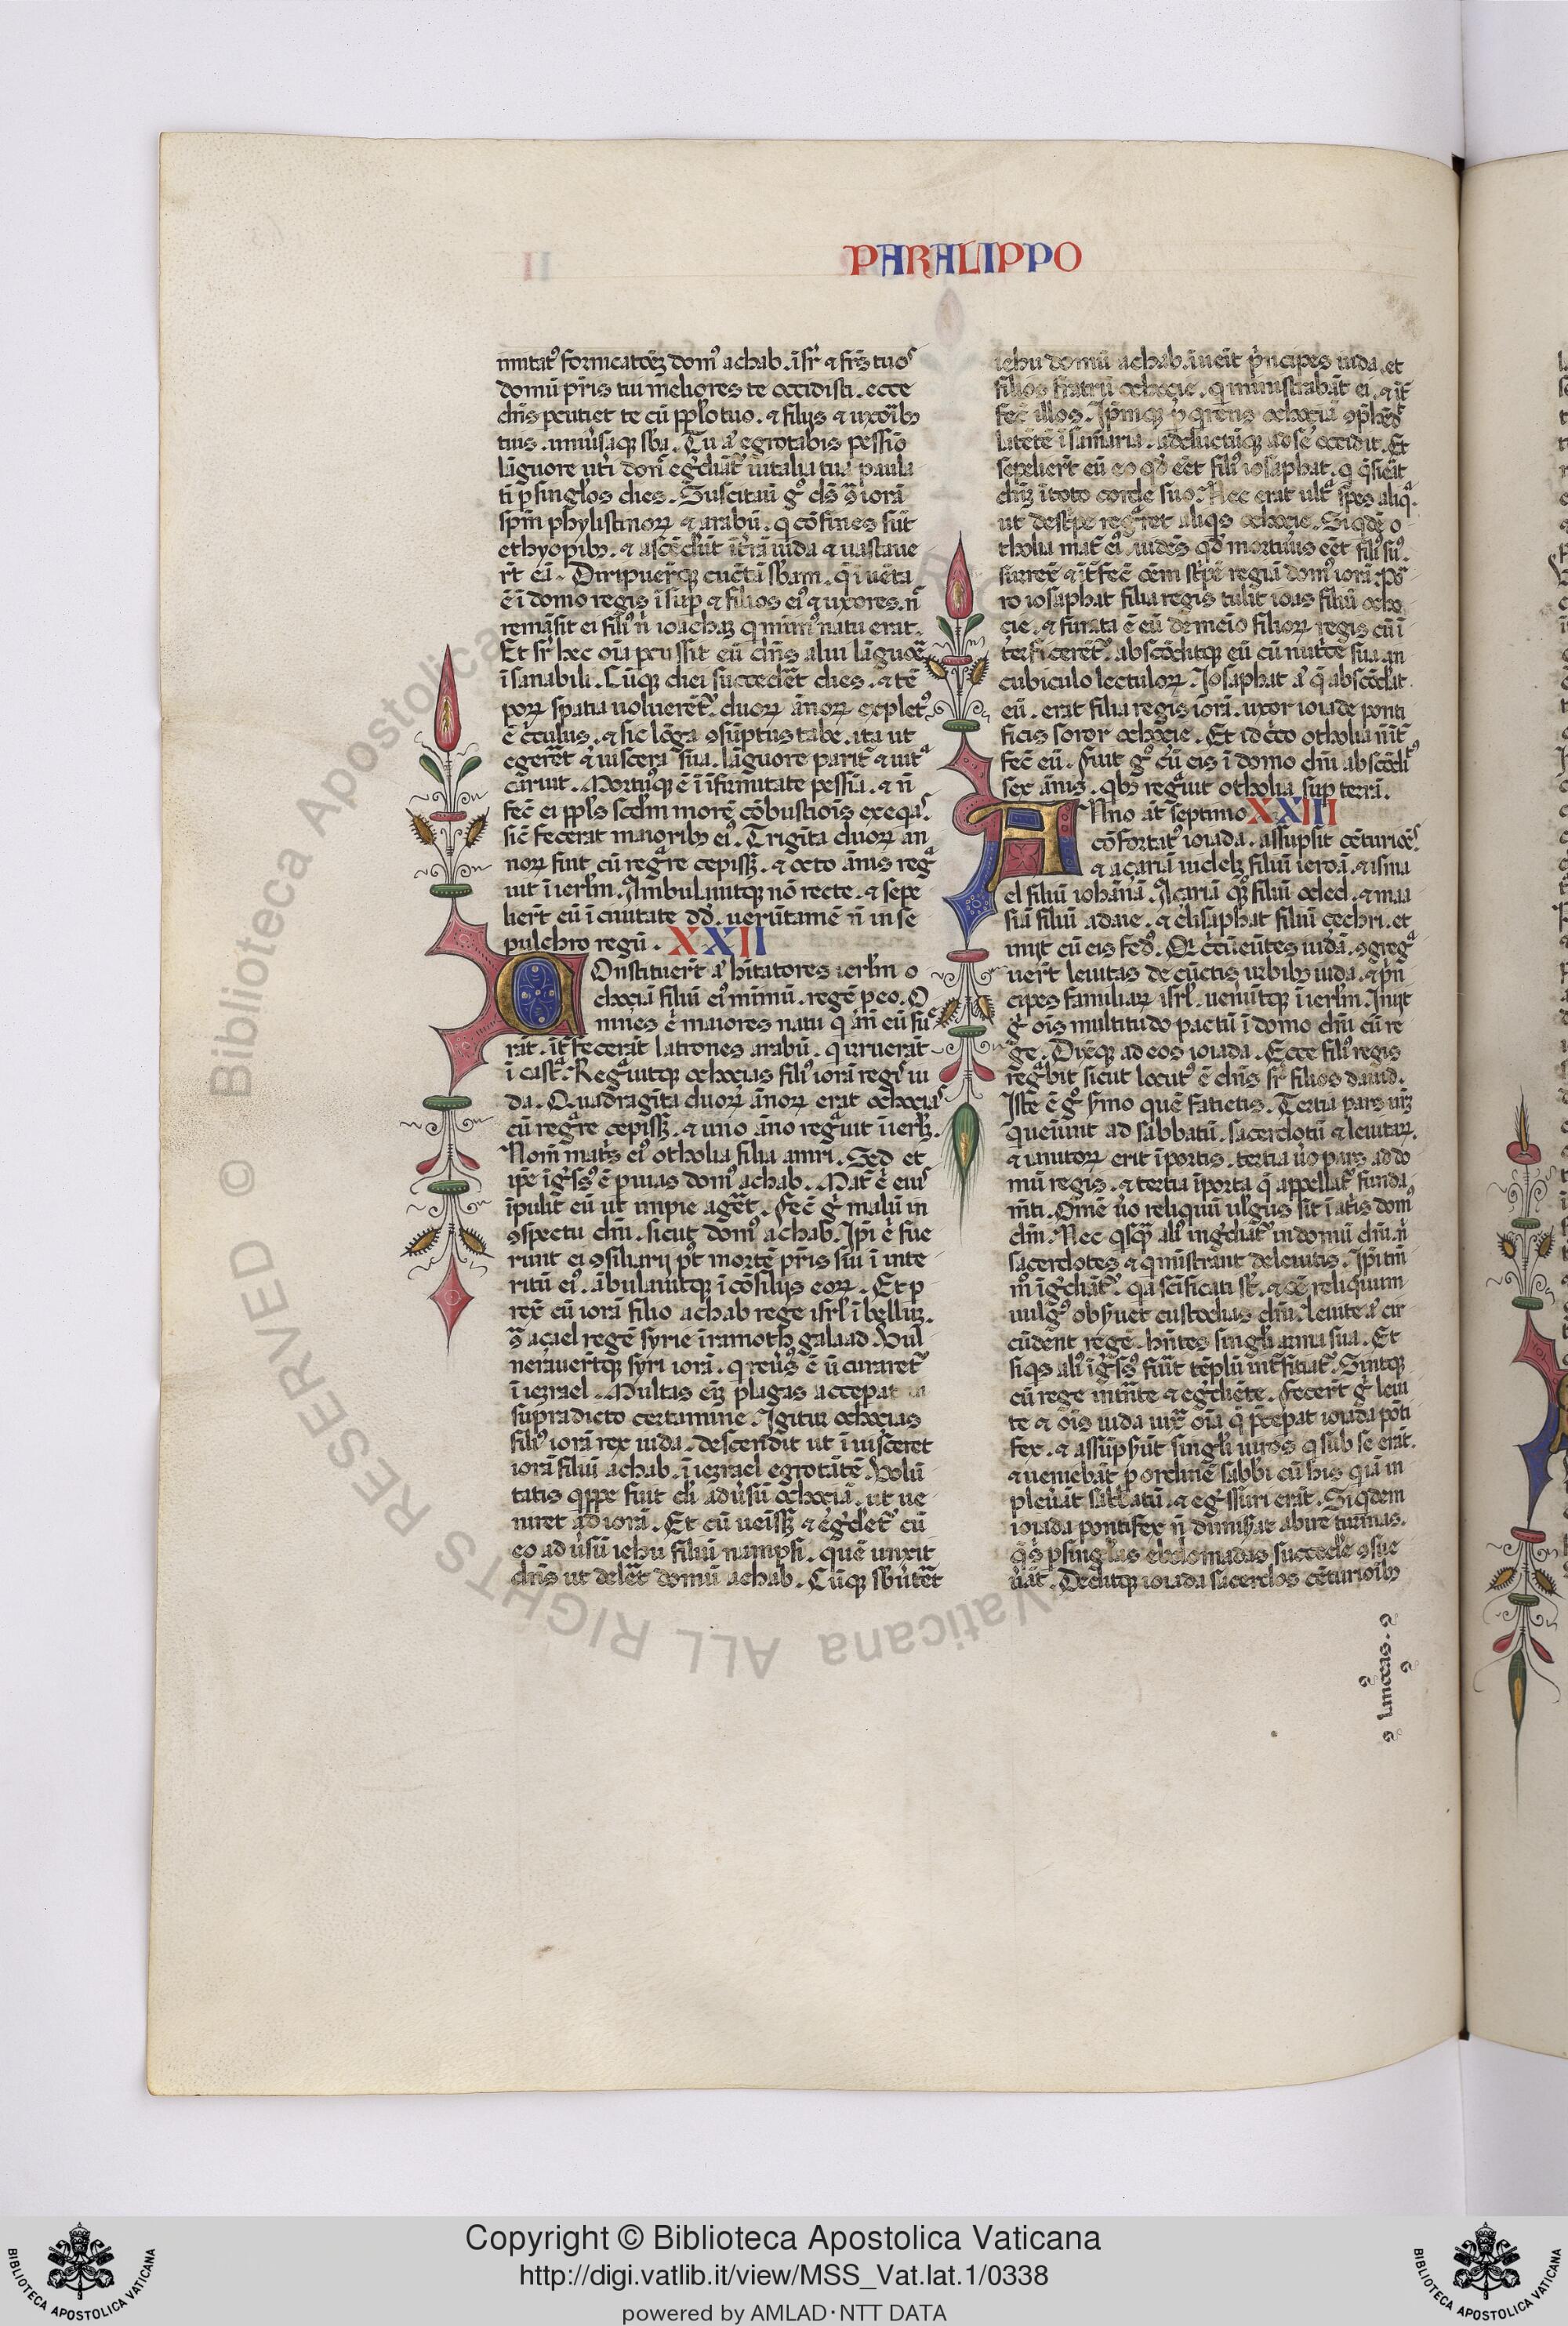 PARALIPPO
mitat᷒ fornicatōeʒ dom᷒ achab. ī sr̄ ⁊ fr̄s tuo᷒
domū pr̄is tui meliores te occidisti. ecce
dn̄s pcutiet te cū ppl̄o tuo. ⁊ filijs ⁊ uxorib᷒
tuis. uniūsaqꝫ sb̄a. Tu aͥ egrotabis pessīo
lāguore
ti ꝑ singl̄os dies. Suscitauͥ gͦ dn̄s
spm̄ phylistinoꝝ ⁊ arabū. qͥ cōfines sūt
ethyopib᷒. ⁊ ascēdēt̄ t̄rā iuda ⁊ uastaue
rt̄ eā. Diripuer̄tqꝫ cūctā sb̄am. q̄ īuēta
ē ī domo regis īsuꝑ ⁊ filios ei᷒ ⁊ uxores. nͨ
remāsit ei fili᷒ nͥ ioachaʒ qͥ minim᷒ natu erat.
Et sr̄ hec oīa ꝑcussit eū dn̄s alui lāguoē
īsanabili. Cūqꝫ diei succedēt dies. ⁊ tē
poꝝ spatia uoluerēt᷒. duoꝝ ānoꝝ explet᷒
ē cͥculus. ⁊ sic lōga ꝯsūptus tabe. ita ut
egerēt ⁊ uiscera sua. lāguore parit̄ ⁊ uitͣ
cāruit. Mortu᷒qꝫ ē ī īfirmitate pessīa. ⁊ nͦ
fec̄ ei ppl̄s scd̄m morē cōbustiōis exeqͣs.
sic̄ fecerat maiorib᷒ ei᷒. Trigīta duoꝝ an
noꝝ fuit cū regͣre cepissʒ. ⁊ octo ānis regͣ
uit ī ierl̄m. Ambulauitqꝫ nō recte. ⁊ sepe
liert̄ eū ī ciuitate dd̄. uerūtamē nͦ in se
pulchro regū. XXII
Onstituert̄ aͥ hītatores ierl̄m o
choziā filiū ei᷒ minimū. regē ꝑ eo. O
mnes eͥ maiores natu qͥ an̄ eū fue
rāt. īt̄fecerāt latrones arabū. qͥ irruerāt
ī castͣ. Regͣuitqꝫ ochozias fili᷒ iorā regis iu
da. Quadragīta duoꝝ ānoꝝ erat ochozias
cū regͣre cepissʒ. ⁊ uno āno regͣuit ī ierl̄m.
Nom̄ matͥs ei᷒ otholia filia amri. Sed et
ip̄e īgͥss᷒ ē ꝑ uias dom᷒ achab. Mat̄ eͥ eius
īpulit eū ut impie ageret. Fec̄ gͥ malū in
ꝯspectu dn̄i. sicut dom᷒ achab. Ip̄i eͥ fue
runt ei ꝯsiliarij pt̄ mortē pr̄is sui ī inte
ritū ei᷒. ābulauitqꝫ ī cōsilijs eoꝝ. Et ꝑ
rex̄ cū iorā filio achab rege isrl̄ ī bellum.
ꝯͣ açael regē syrie ī ramoth galaad. Vul
nerauert̄qꝫ syri iorā. qͥ reūs᷒ ē ut curaret᷒
ī iezrael. Multas eͥʒ plagas accepat in
supradicto certamine. Igitur ochozias
fili᷒ iorā rex iuda. descendit ut īuisceret
iorā filiū achab. ī iezrael egrotātē. Volū
tatis qͥppe fuit dī aduͤsū ochoziā. ut ue
niret ad iorā. Et cū uēissʒ ⁊ egͥdet᷒ cū
eo ad uͤsū iehu filiū nampsi. quē unxit
dn̄s ut delēt domū achab. Cūqꝫ sbuͤtēt
iehu domū achab. īuēit pͥncipes iuda. et
filios fratrū ochozie. qͥ ministrabāt ei. ⁊ īt̄
fec̄ illos. Ip̄mqꝫ qͥrens ochoziā
latētē ī samaria. adductūqꝫ ad se occidit. Et
sepeliert̄ eū eo qͦd eēt fili᷒ iosaphat. qͥ qͥsiēat
dn̄ʒ ī toto corde suo. Nec erat ultͣ spes aliqͣ.
ut de stirpe regͣret aliqͥs ochozie. Siqͥdē o
tholia mat̄ ei᷒. uidēs qͦd mortuus eēt fili᷒ su᷒.
surrex̄ ⁊ īt̄fec̄ oēm stirpē regiā dom᷒ iorā. Por
ro iosaphat filia regis tulit ioas filiū ocho
cie. ⁊ furata ē eū de meͥo filioꝝ regis cū ī
terficerēt᷒. abscōditqꝫ eū cū nutͥce sua. an
cubiculo lectuloꝝ. Iosaphat aͥ q̄ abscōdat
eū. erat filia regis iorā. uxor ioiade ponti
ficis soror ochozie. Et idcͥco otholia nō īt̄
fec̄ eū. Fuit gͦ cū eis ī domo dn̄i abscōdit᷒
sex ānis. qͥb᷒ regͣuit otholia suꝑ terrā.
Nno āt septimo XXIII
cōfortat᷒ ioiada. assūpsit cēturiōēs.
⁊ açariā uideliʒ filiū ieroā. ⁊ isma
el filiū iohānā. Açariā qͦʒ filiū obed. ⁊ maa
siā filiū adaie. ⁊ elisaphat filiū çechri. et
iniit cū eis fed᷒. Qͥ cͥcūeūtes iudā. ꝯgregͣ
uert̄ leuitas de cūctis urbib᷒ iuda. ⁊ pͥn
cipes familiaꝝ isrl̄. ueneūtqꝫ ī ierl̄m. Iniit
gͥ ois multitudo pactū ī domo dn̄i cū re
ge. Dix̄qꝫ ad eos ioiada. Ecce fili᷒ regis
regͣbit sicut locut᷒ ē dn̄s sr̄ filios dauid.
Iste ē gͦ smo quē facietis. Tertia pars uꝝ
queniunt ad sabbatū. sacerdotū ⁊ leuitaꝝ.
⁊ ianitoꝝ erit ī portis. tertia uͦo pars ad do
mū regis. ⁊ tertia ī porta q̄ appellat᷒ funda
mīti. Omē uͦo reliquū uulgus sit ī atͥis dom᷒
dn̄i. Nec qͥsqͣꝫ ali᷒ ingͥdiat᷒ in domū dn̄i. nͥ
sacerdotes ⁊ qͥ ministrant de leuitis. Ip̄i tm̄
mͦ īgͥdiāt᷒. qͥa scīficati st̄. ⁊ oē reliquum
uulg᷒ obsuet custodias dn̄i. leuite aͥ cir
cūdent regē. hn̄tes singl̄i arma sua. Et
siqͥs ali᷒ īgͥss᷒ fuīt tēplū int̄ficiat᷒. Sintqꝫ
cū rege intrāte ⁊ egͥdiēte. Fecert̄ gͥ leui
te ⁊ ois iuda iuxͣ oīa q̄ pͥcepat ioiada pōti
fex. ⁊ assūpsūt singl̄i uiros qͥ sub se erāt.
⁊ ueniebāt ꝑ ordinē sabb̄i cū his qͥ iā im
pleuāt sabbatū. ⁊ egͥssuri erāt. Siqͥdem
ioiada pontifex nͦ dimisat abire turmas.
q̄ s ꝑ singulas ebdomadas succedē ꝯsue
uāt. Deditqꝫ ioiada sacerdos cēturioīb᷒
lanceas.
Copyright © Biblioteca Apostolica Vaticana
http://digi.vatlib.it/view/MSS_Vat.lat.1/0338
powered by AMLAD·NTT DATA
BIBLIOTECA APOSTOLICA VATICANA
BIBLIOTECA APOSTOLICA VATICANA
© Biblioteca Apostolica Vaticana ALL RIGHTS RESERVED